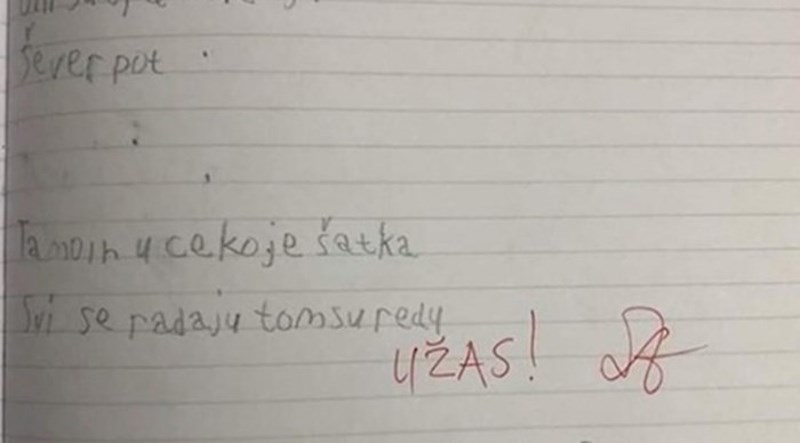 Šever pot
Tamo ih učekoje šatka
Svi se radaju tomsuredu
UŽAS!